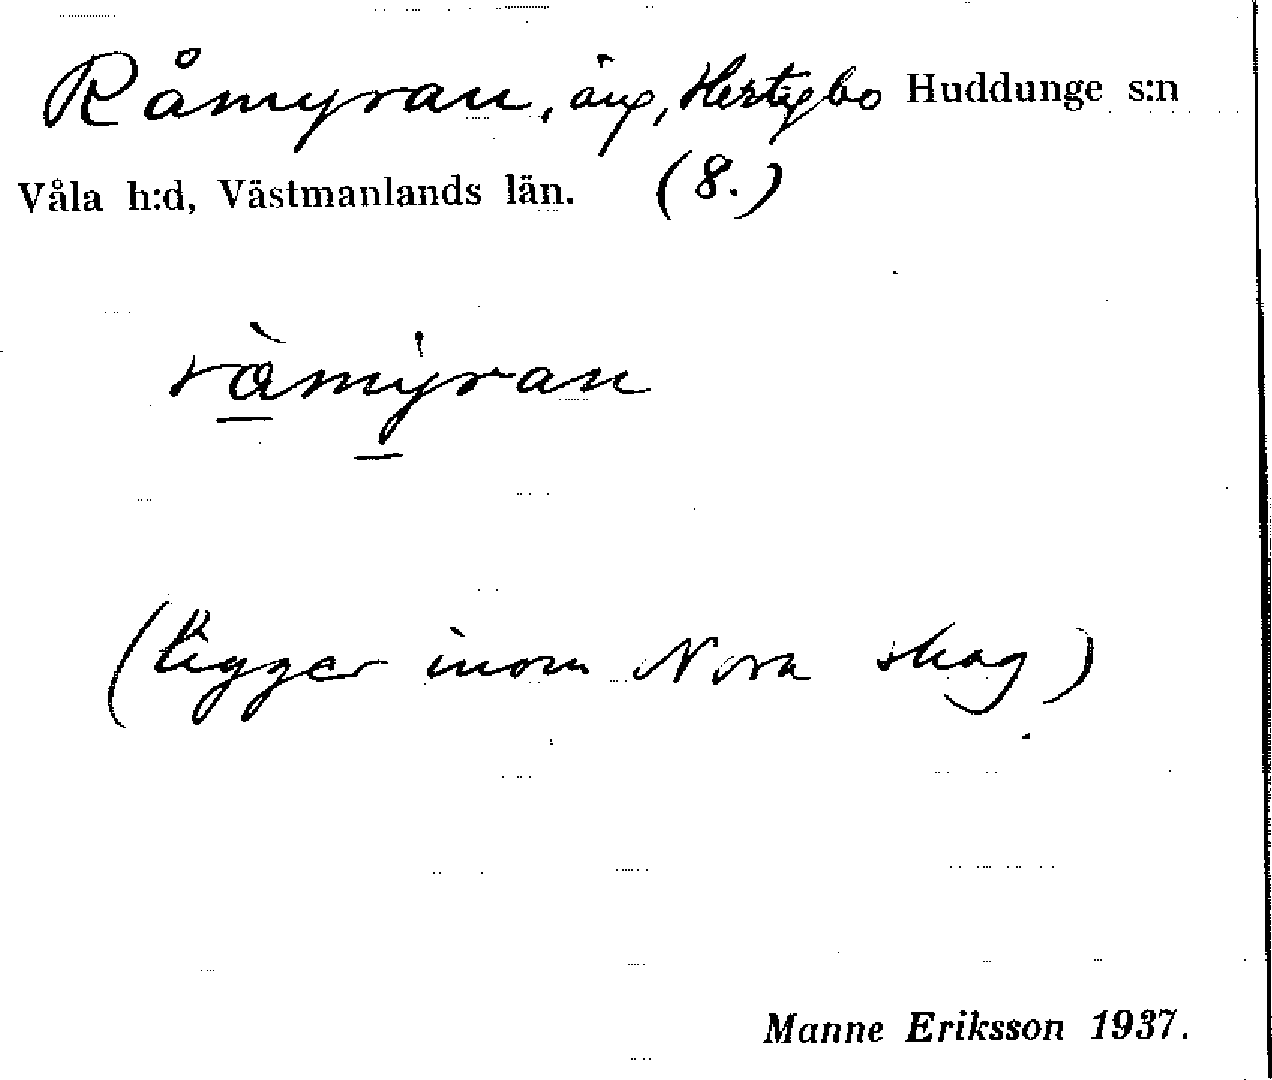 Råmyran, äng, Hertigbo Huddunge s:n
Våla h:d, Västmanlands län. (8.)
ràmy̍ran
(ligger inom Nora skog)
Manne Eriksson 1937.